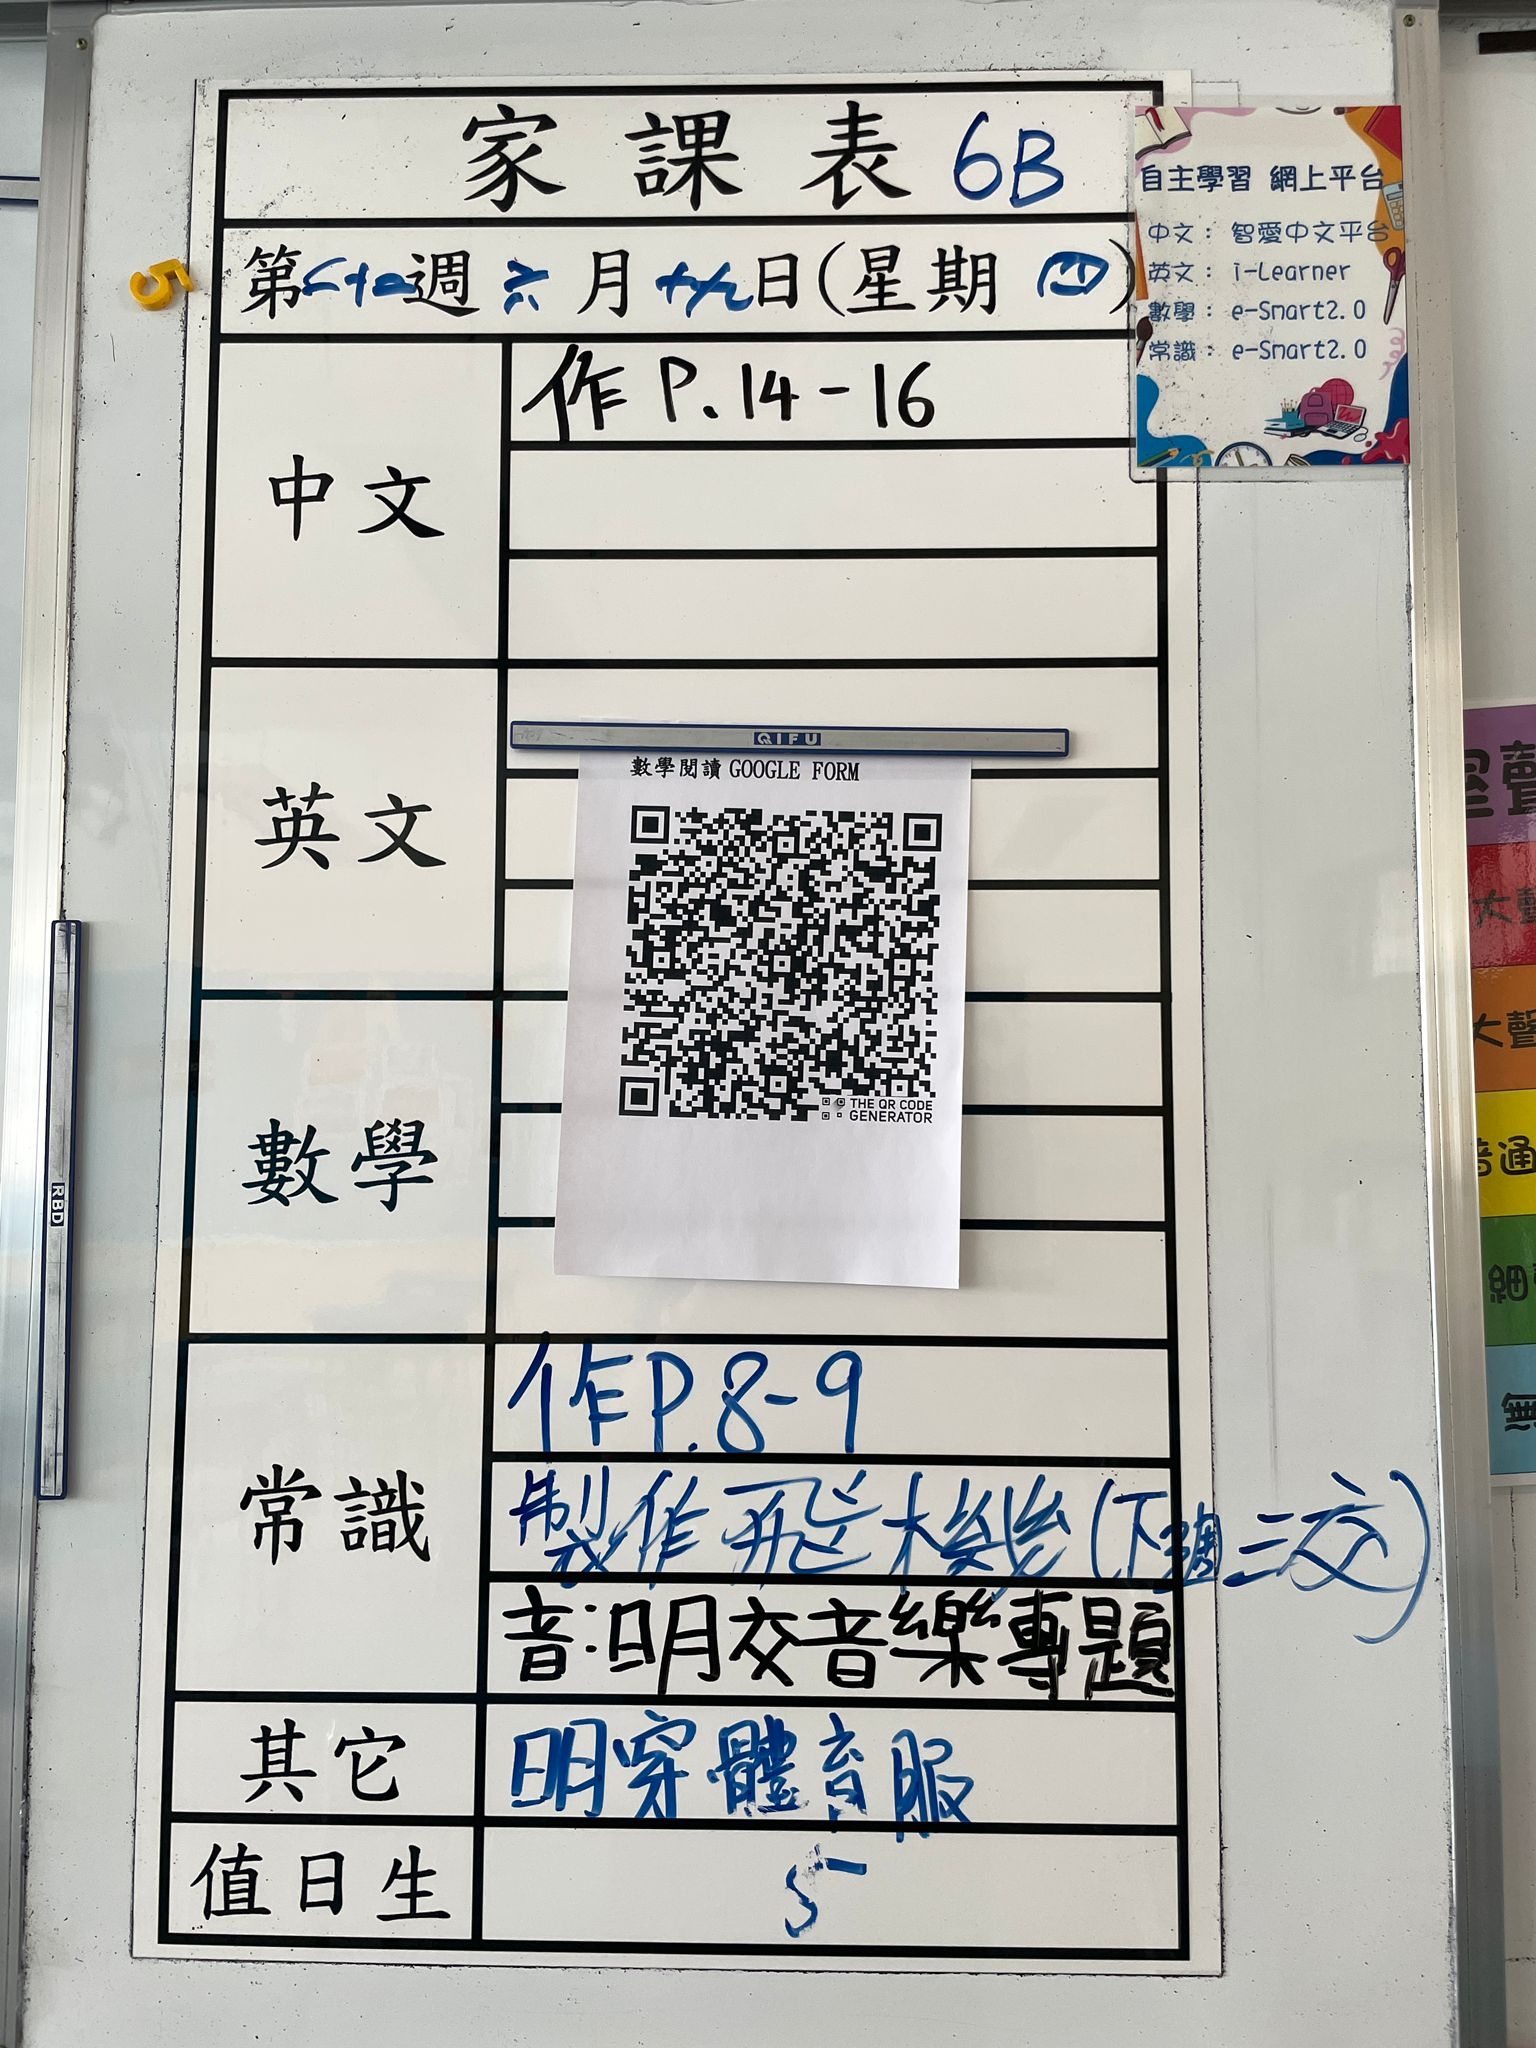 家課表 6B
5
第 週 六 月 日(星期 四)
自主學習 網上平台
中文： 智愛中文平台
英文： i-Learner
數學： e-Smart2.0
常識： e-Smart2.0
中文
作 P.14-16
英文
QIFU
數學閱讀 GOOGLE FORM
THE QR CODE
GENERATOR
數學
RBD
常識
作P.8-9
製作飛機(下週三交)
音:明交音樂專題
其它
明穿體育服
值日生
5
大聲
普通
細
無